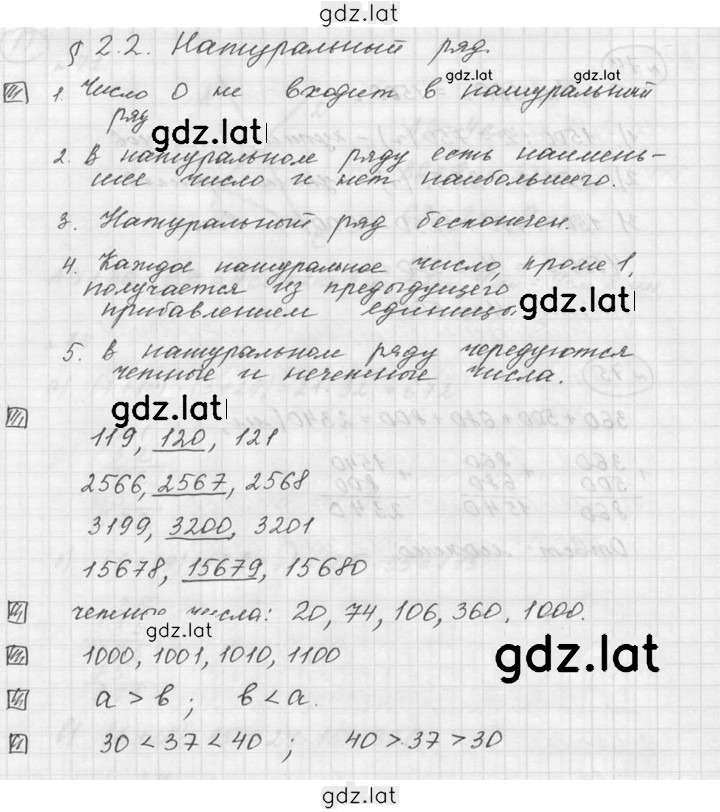 gdz.lat
§ 2.2. Натуральный ряд.
gdz.lat gdz.lat
1. Число 0 не входит в натуральный
ряд
gdz.lat
2. В натуральном ряду есть наимень-
шее число и нет наибольшего.
3. Натуральный ряд бесконечен.
4. Каждое натуральное число, кроме 1,
получается из предыдущего
прибавлением единицы.
gdz.lat
5. В натуральном ряду чередуются
четные и нечетные числа.
gdz.lat
119, 120, 121
2566, 2567, 2568
3199, 3200, 3201
15678, 15679, 15680
четные числа: 20, 74, 106, 360, 1000.
gdz.lat
1000, 1001, 1010, 1100
gdz.lat
a > b ; b < a.
30 < 37 < 40 ; 40 > 37 > 30
gdz.lat